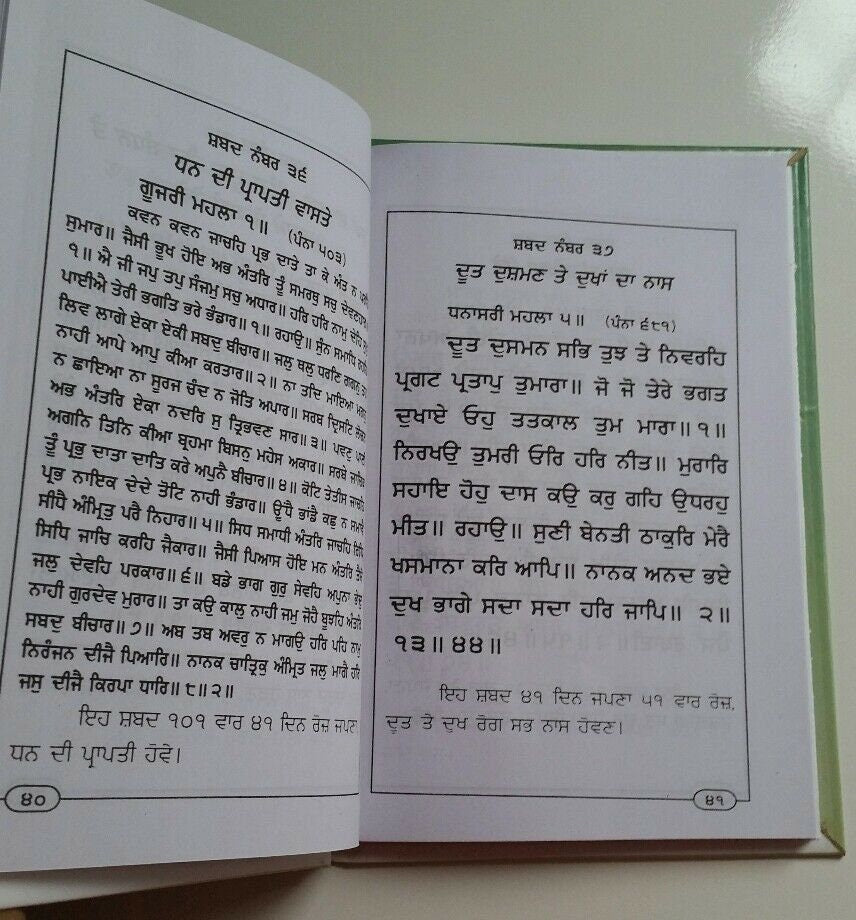 ਸ਼ਬਦ ਨੰਬਰ ੩੬
ਧਨ ਦੀ ਪ੍ਰਾਪਤੀ ਵਾਸਤੇ
ਗੂਜਰੀ ਮਹਲਾ ੧॥ (ਪੰਨਾ ੫੦੩)
ਕਵਨ ਕਵਨ ਜਾਚਹਿ ਪ੍ਰਭ ਦਾਤੇ ਤਾ ਕੇ ਅੰਤ ਨ
ਸੁਮਾਰ॥ ਜੈਸੀ ਭੂਖ ਹੋਇ ਅਭ ਅੰਤਰਿ ਤੂੰ ਸਮਰਥੁ ਸਚੁ
੧॥ ਐ ਜੀ ਜਪੁ ਤਪੁ ਸੰਜਮੁ ਸਚੁ ਅਧਾਰ॥ ਹਰਿ ਹਰਿ ਨਾਮੁ ਦੇਹਿ
ਪਾਈਐ ਤੇਰੀ ਭਗਤਿ ਭਰੇ ਭੰਡਾਰ॥੧॥ ਰਹਾਉ॥ ਸੁੰਨ ਸਮਾਧਿ
ਲਿਵ ਲਾਗੇ ਏਕਾ ਏਕੀ ਸਬਦੁ ਬੀਚਾਰ॥ ਜਲੁ ਥਲੁ ਧਰਣਿ ਗਗਨੁ
ਨਾਹੀ ਆਪੇ ਆਪੁ ਕੀਆ ਕਰਤਾਰ॥੨॥ ਨਾ ਤਦਿ ਮਾਇਆ
ਨ ਛਾਇਆ ਨਾ ਸੂਰਜ ਚੰਦ ਨ ਜੋਤਿ ਅਪਾਰ॥ ਸਰਬ ਦ੍ਰਿਸਟਿ
ਅਭ ਅੰਤਰਿ ਏਕਾ ਨਦਰਿ ਸੁ ਤ੍ਰਿਭਵਣ ਸਾਰ॥੩॥ ਪਵਣੁ
ਅਗਨਿ ਤਿਨਿ ਕੀਆ ਬ੍ਰਹਮਾ ਬਿਸਨੁ ਮਹੇਸ ਅਕਾਰ॥ ਸਰਬੇ
ਤੂੰ ਪ੍ਰਭੁ ਦਾਤਾ ਦਾਤਿ ਕਰੇ ਅਪੁਨੈ ਬੀਚਾਰ॥੪॥ ਕੋਟਿ ਤੇਤੀਸ ਜਾਚਹਿ
ਪ੍ਰਭ ਨਾਇਕ ਦੇਦੇ ਤੋਟਿ ਨਾਹੀ ਭੰਡਾਰ॥ ਊਂਧੈ ਭਾਂਡੈ ਕਛੁ ਨ ਸਮਾਵੈ
ਸੀਧੈ ਅੰਮ੍ਰਿਤੁ ਪਰੈ ਨਿਹਾਰ॥੫॥ ਸਿਧ ਸਮਾਧੀ ਅੰਤਰਿ ਜਾਚਹਿ
ਸਿਧਿ ਜਾਚਿ ਕਰਹਿ ਜੈਕਾਰ॥ ਜੈਸੀ ਪਿਆਸ ਹੋਇ ਮਨ ਅੰਤਰਿ
ਜਲੁ ਦੇਵਹਿ ਪਰਕਾਰ॥੬॥ ਬਡੇ ਭਾਗ ਗੁਰੁ ਸੇਵਹਿ ਅਪੁਨਾ
ਨਾਹੀ ਗੁਰਦੇਵ ਮੁਰਾਰ॥ ਤਾ ਕਉ ਕਾਲੁ ਨਾਹੀ ਜਮੁ ਜੋਹੈ ਬੂਝਹਿ ਅੰਤਰਿ
ਸਬਦੁ ਬੀਚਾਰ॥੭॥ ਅਬ ਤਬ ਅਵਰੁ ਨ ਮਾਗਉ ਹਰਿ ਪਹਿ ਨਾਮੁ
ਨਿਰੰਜਨ ਦੀਜੈ ਪਿਆਰਿ॥ ਨਾਨਕ ਚਾਤ੍ਰਿਕੁ ਅੰਮ੍ਰਿਤ ਜਲੁ ਮਾਗੈ ਹਰਿ
ਜਸੁ ਦੀਜੈ ਕਿਰਪਾ ਧਾਰਿ॥੮॥੨॥
ਇਹ ਸ਼ਬਦ ੧੦੧ ਵਾਰ ੪੧ ਦਿਨ ਰੋਜ਼ ਜਪਣਾ
ਧਨ ਦੀ ਪ੍ਰਾਪਤੀ ਹੋਵੇ।
੪੦
ਸ਼ਬਦ ਨੰਬਰ ੩੭
ਦੂਤ ਦੁਸ਼ਮਣ ਤੇ ਦੁਖਾਂ ਦਾ ਨਾਸ
ਧਨਾਸਰੀ ਮਹਲਾ ੫॥ (ਪੰਨਾ ੬੮੧)
ਦੂਤ ਦੁਸਮਨ ਸਭਿ ਤੁਝ ਤੇ ਨਿਵਰਹਿ
ਪ੍ਰਗਟ ਪ੍ਰਤਾਪੁ ਤੁਮਾਰਾ॥ ਜੋ ਜੋ ਤੇਰੇ ਭਗਤ
ਦੁਖਾਏ ਓਹੁ ਤਤਕਾਲ ਤੁਮ ਮਾਰਾ॥੧॥
ਨਿਰਖਉ ਤੁਮਰੀ ਓਰਿ ਹਰਿ ਨੀਤ॥ ਮੁਰਾਰਿ
ਸਹਾਇ ਹੋਹੁ ਦਾਸ ਕਉ ਕਰੁ ਗਹਿ ਉਧਰਹੁ
ਮੀਤ॥ ਰਹਾਉ॥ ਸੁਣੀ ਬੇਨਤੀ ਠਾਕੁਰਿ ਮੇਰੈ
ਖਸਮਾਨਾ ਕਰਿ ਆਪਿ॥ ਨਾਨਕ ਅਨਦ ਭਏ
ਦੁਖ ਭਾਗੇ ਸਦਾ ਸਦਾ ਹਰਿ ਜਾਪਿ॥ ੨॥
੧੩॥੪੪॥
ਇਹ ਸ਼ਬਦ ੪੧ ਦਿਨ ਜਪਣਾ ੫੧ ਵਾਰ ਰੋਜ਼,
ਦੂਤ ਤੇ ਦੁਖ ਰੋਗ ਸਭ ਨਾਸ ਹੋਵਣ।
੪੧